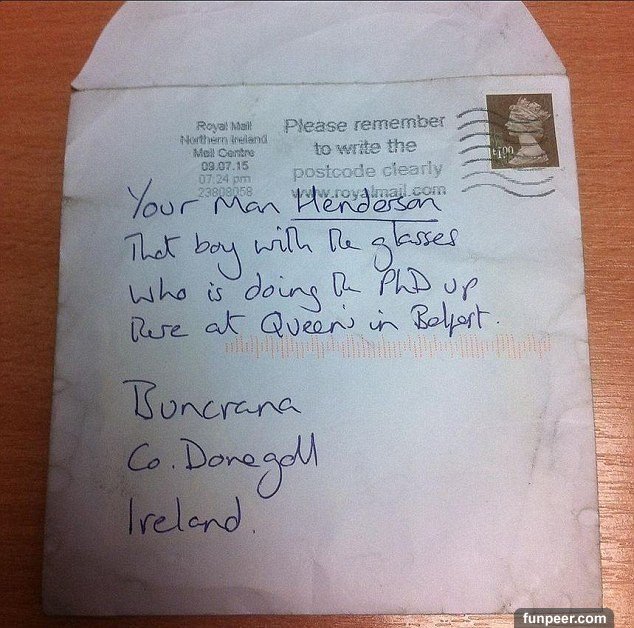 Royal Mail
Northern Ireland
Mail Centre
09.07.15
07.24 pm
23808058
Please remember
to write the
postcode clearly
www.royalmail.com
£1.00
Your Man Henderson
That boy with the glasses
who is doing the PhD up
there at Queen's in Belfast.
Buncrana
Co. Donegall
Ireland.
funpeer.com